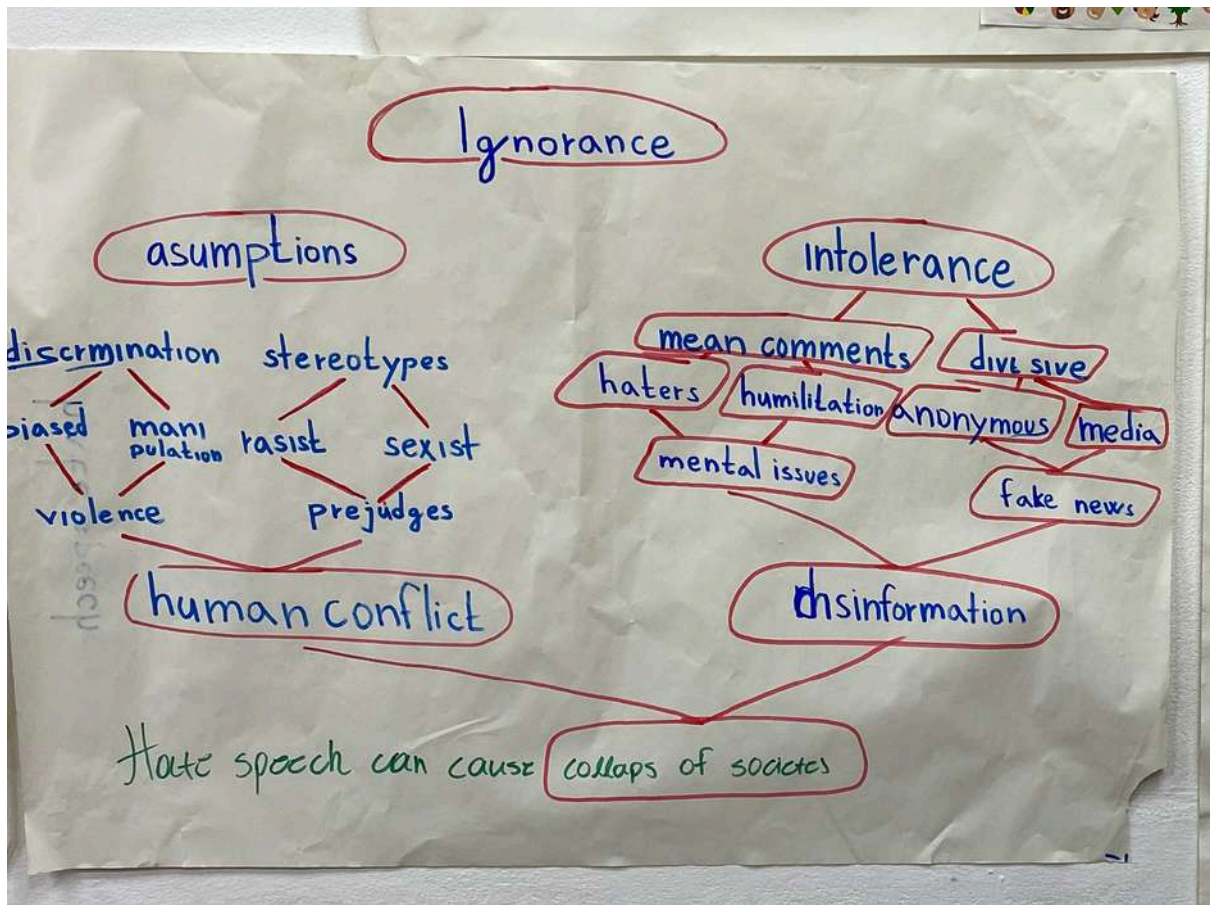 Ignorance
asumptions
intolerance
discrmination stereotypes
biased
mani
pulation
rasist
sexist
violence
prejudges
human conflict
mean comments
divisive
haters
humilitation
anonymous
media
mental issues
fake news
disinformation
Hate speech can cause collaps of societes